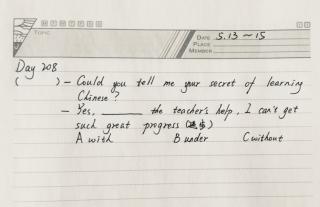 M T W T F S S
TOPIC
DATE 5.13~15
PLACE
MEMBER
Day 208
( ) – Could you tell me your secret of learning
Chinese?
– Yes, ______ the teacher's help, I can't get
such great progress (进步)
A with B under C without